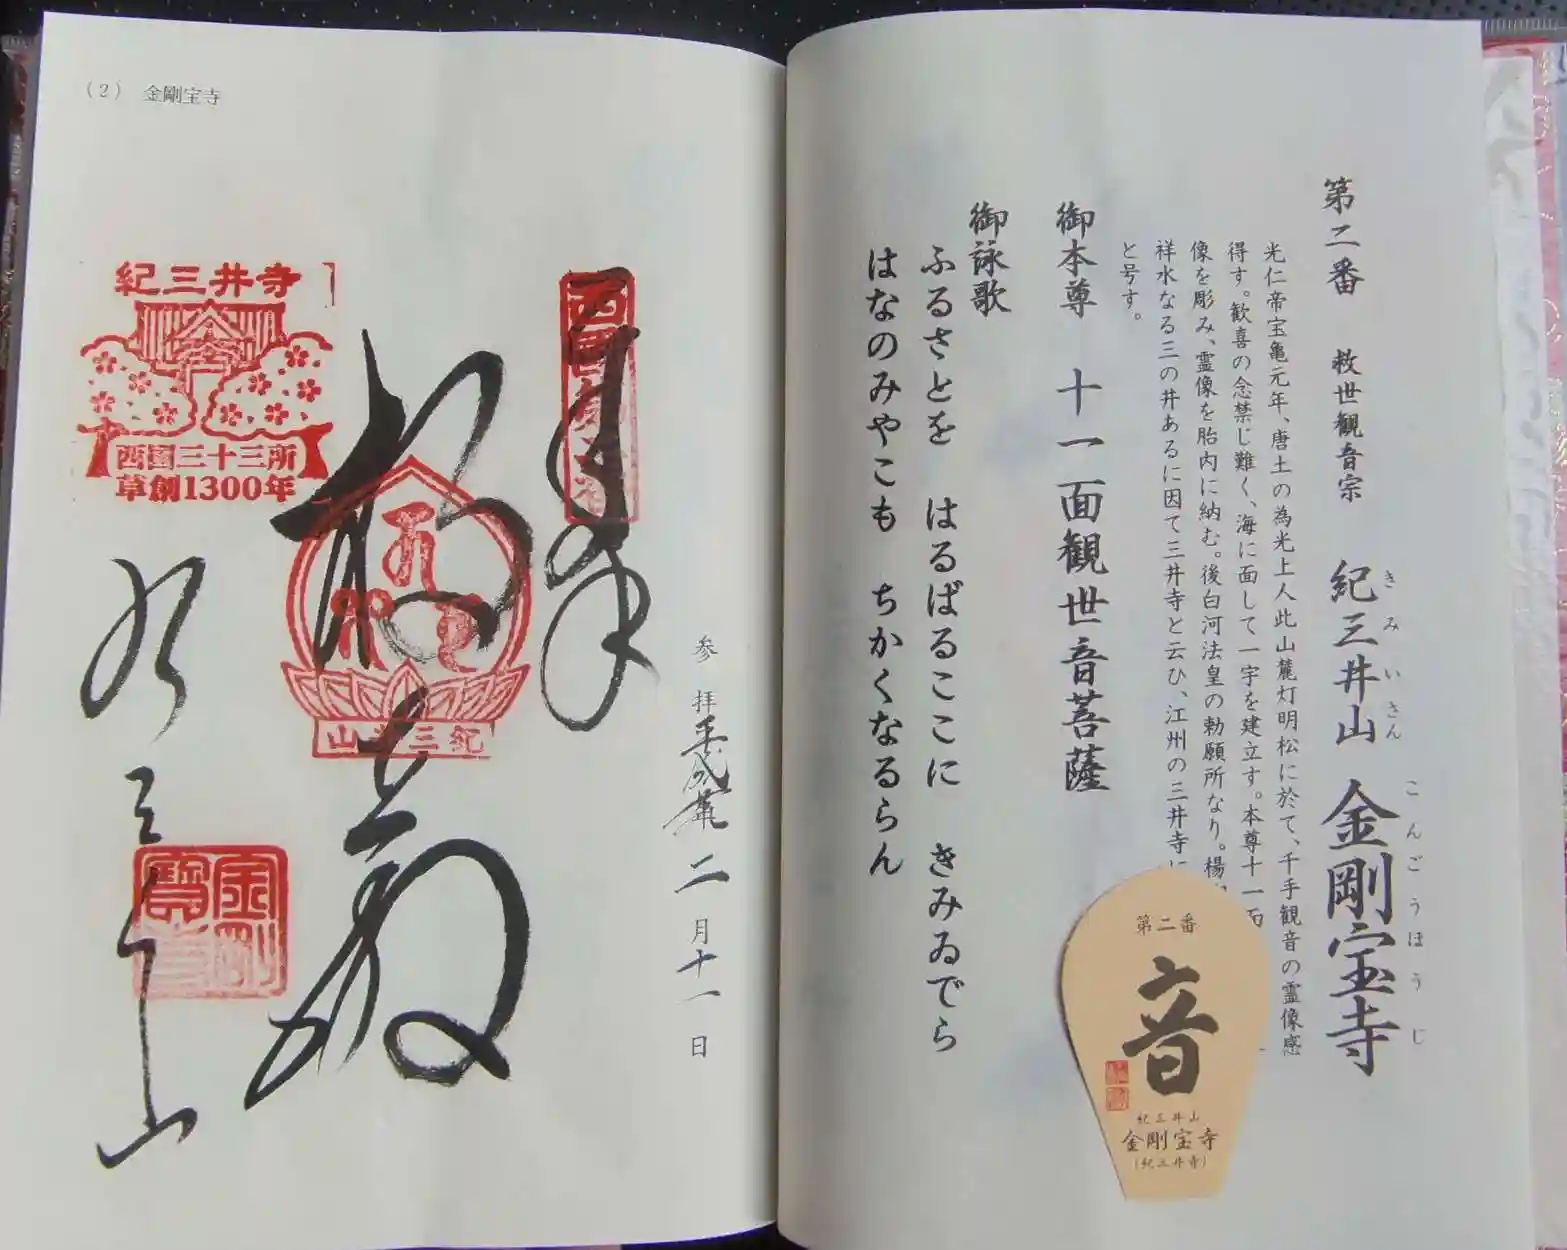 第二番　救世観音宗　紀三井山　金剛宝寺
きみいさん　こんごうほうじ
光仁帝宝亀元年、唐土の為光上人此山麓灯明松に於て、千手観音の霊像感
得す。歓喜の念禁じ難く、海に面して一宇を建立す。本尊十一面
像を彫み、霊像を胎内に納む。後白河法皇の勅願所なり。楊
祥水なる三の井あるに因て三井寺と云ひ、江州の三井寺に
と号す。
御本尊　十一面観世音菩薩
御詠歌
ふるさとを　はるばるここに　きみゐでら
はなのみやこも　ちかくなるらん
第二番
音
紀三井山
金剛宝寺
(紀三井寺)
(2)　金剛宝寺
参拝平成　年二月十一日
奉拝
紀三井山
紀三井寺
西国三十三所
草創1300年
金剛寶寺